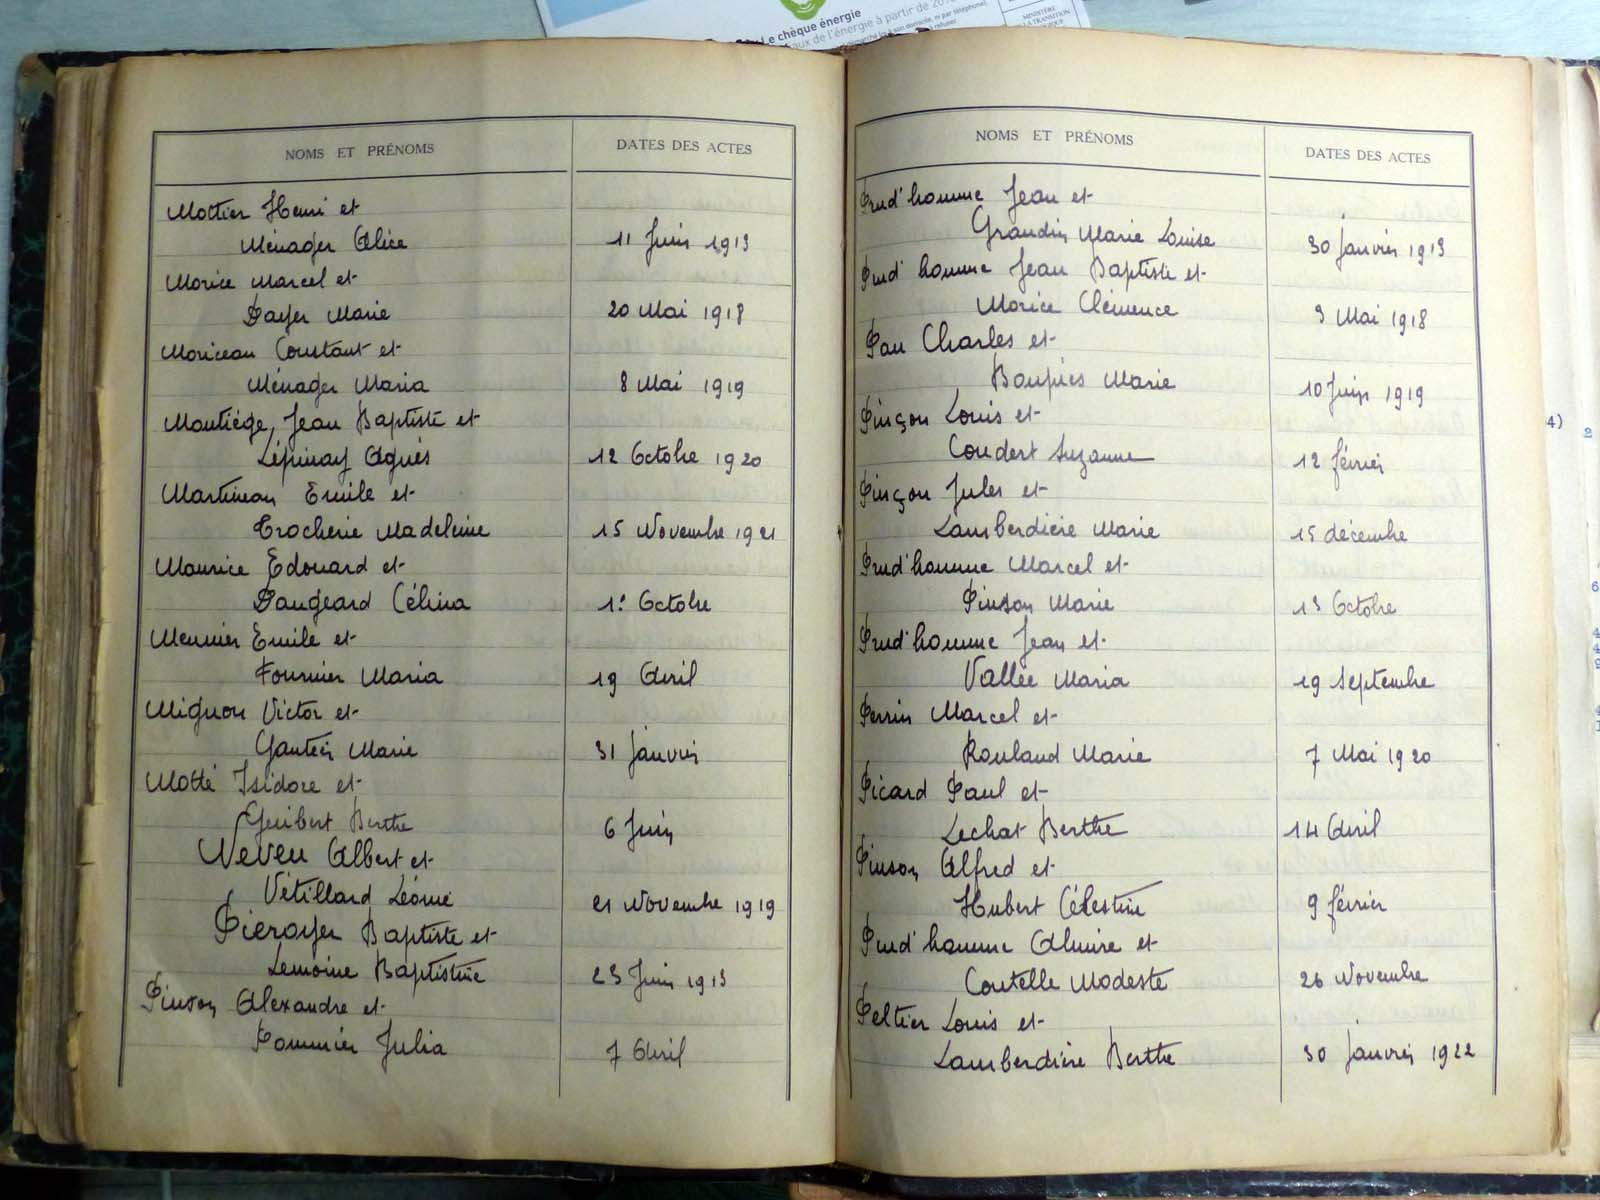 Le chèque énergie
aux de l'énergie à partir de 201
MINISTÈRE
DE LA TRANSITION
NOMS ET PRÉNOMS
DATES DES ACTES
Mottier Henri et
Ménager Alice 11 Juin 1913
Morice Marcel et
Dayer Marie 20 Mai 1918
Moriceau Constant et
Ménager Maria 8 Mai 1919
Mautiége, Jean Baptiste et
Lépinay Agnès 12 Octobre 1920
Martineau Emile et
Trocherie Madeleine 15 Novembre 1921
Maurice Edouard et
Daugeard Célina 1º Octobre
Meunier Emile et
Fournier Maria 19 Avril
Mignon Victor et
Gautier Marie 31 janvier
Motté Isidore et
Guibert Berthe 6 Juin
Neveu Albert et
Vétillard Léonie 21 Novembre 1919
Pieroyer Baptiste et
Lemoine Baptistine 23 Juin 1913
Pinson Alexandre et
Pommier Julia 7 Avril
NOMS ET PRÉNOMS
DATES DES ACTES
Prud'homme Jean et
Grandin Marie Louise 30 Janvier 1913
Prud'homme Jean Baptiste et
Morice Clémence 3 Mai 1918
Pau Charles et
Marie 10 Juin 1919
Pinçon Louis et
Coudert Suzanne 12 février
Pinçon Jules et
Lamberdière Marie 15 décembre
Prud'homme Marcel et
Pinson Marie 13 Octobre
Prud'homme Jean et
Vallée Maria 19 septembre
Perrin Marcel et
Rouland Marie 7 Mai 1920
Picard Paul et
Lechat Berthe 14 Avril
Pinson Alfred et
Hubert Célestine 9 février
Prud'homme Almire et
Coutelle Modeste 26 Novembre
Peltier Louis et
Lamberdière Berthe 30 Janvier 1922